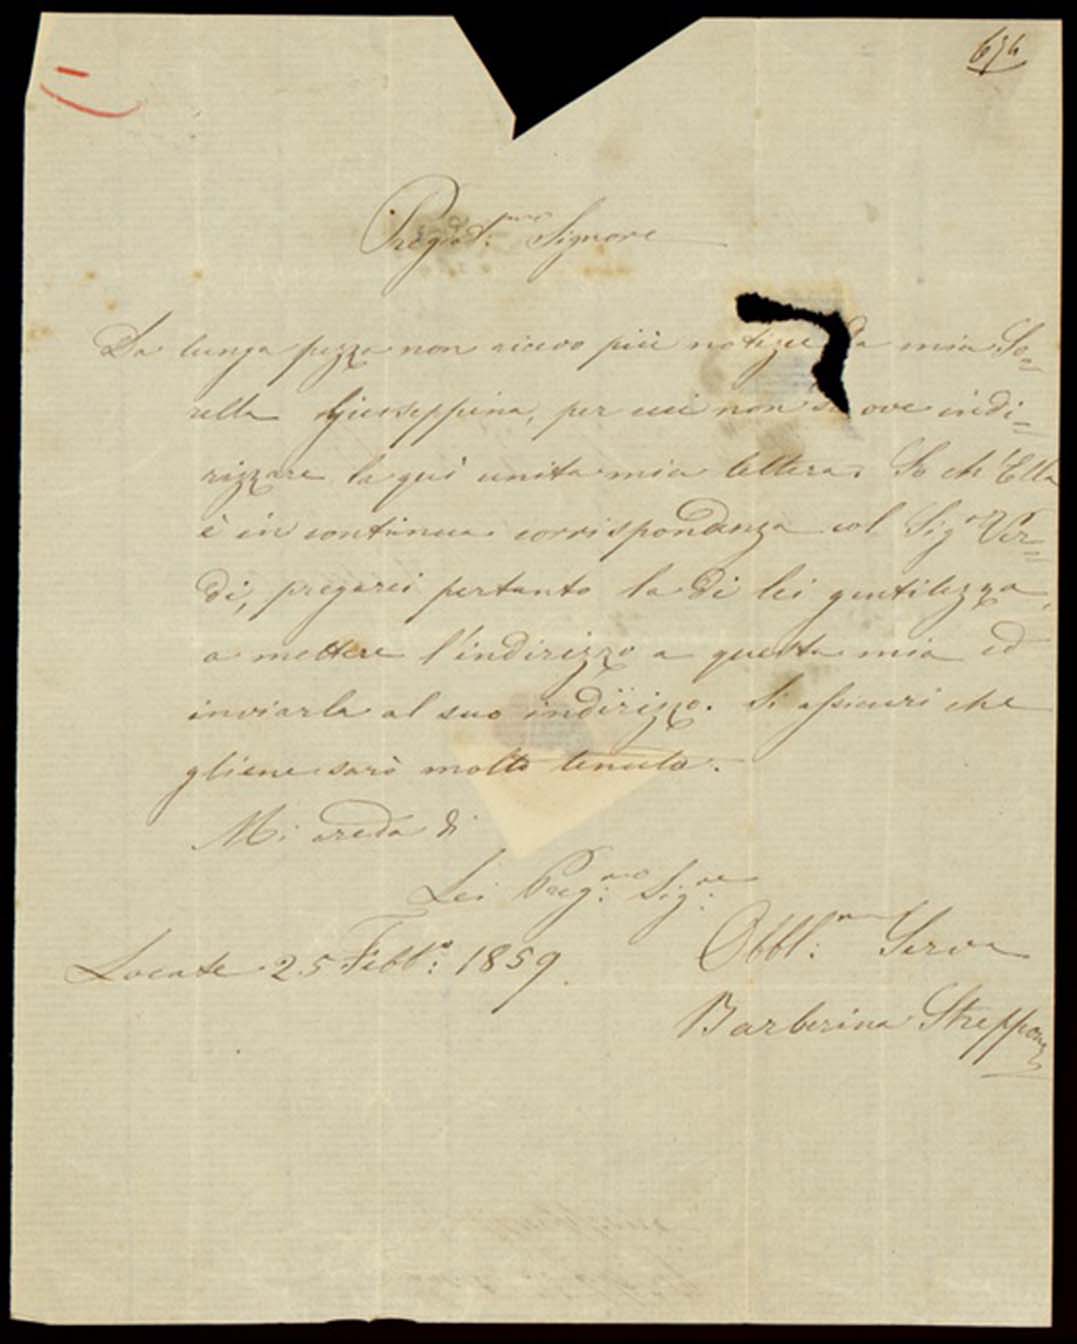 674
Pregiat:mo Signore
Da lunga pezza non ricevo più notizie da mia So=
rella Giuseppina, per cui non so ove indi=
rizzare la qui unita mia lettera. So ch'Ella
è in continua corrispondenza col Sigr Ver=
di, pregarei pertanto la di lei gentilezza,
a mettere l'indirizzo a questa mia ed
inviarla al suo indirizzo. Si assicuri che
gliene sarò molto tenuta.
Mi creda di
Lei Preg:mo Sig:re
Obbl:ma Serva
Locate 25 Febb:o 1859.
Barberina Strepponi